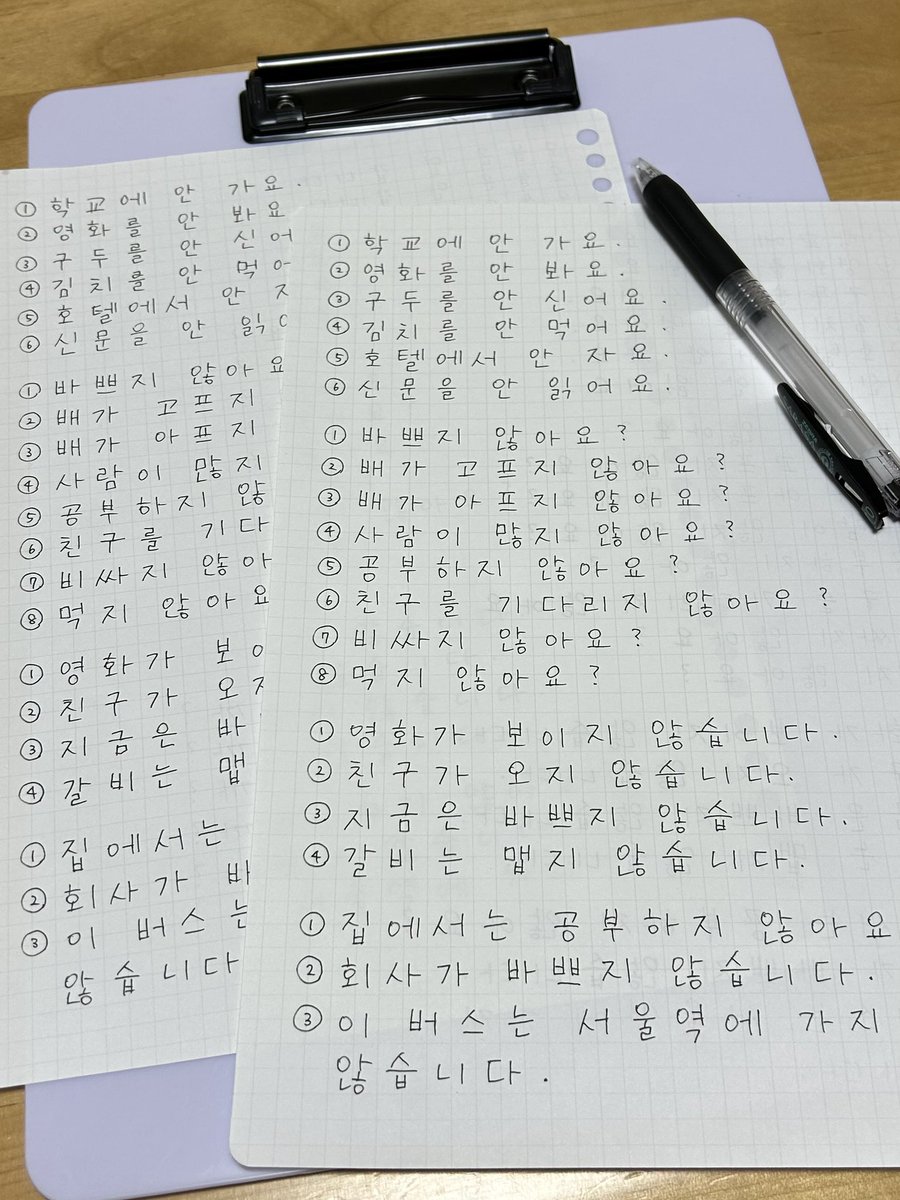 ① 학교에 안 가요.
② 영화를 안 봐요
③ 구두를 안 신어
④ 김치를 안 먹어
⑤ 호텔에서 안 자
⑥ 신문을 안 읽어
① 바쁘지 않아요
② 배가 고프지
③ 배가 아프지
④ 사람이 많지
⑤ 공부하지 않
⑥ 친구를 기다
⑦ 비싸지 않아
⑧ 먹지 않아요
① 영화가 보이
② 친구가 오지
③ 지금은 바
④ 갈비는 맵
① 집에서는
② 회사가 바
③ 이 버스는
않습니다
① 학교에 안 가요.
② 영화를 안 봐요.
③ 구두를 안 신어요.
④ 김치를 안 먹어요.
⑤ 호텔에서 안 자요.
⑥ 신문을 안 읽어요.
① 바쁘지 않아요?
② 배가 고프지 않아요?
③ 배가 아프지 않아요?
④ 사람이 많지 않아요?
⑤ 공부하지 않아요?
⑥ 친구를 기다리지 않아요?
⑦ 비싸지 않아요?
⑧ 먹지 않아요?
① 영화가 보이지 않습니다.
② 친구가 오지 않습니다.
③ 지금은 바쁘지 않습니다.
④ 갈비는 맵지 않습니다.
① 집에서는 공부하지 않아요
② 회사가 바쁘지 않습니다.
③ 이 버스는 서울역에 가지
않습니다.